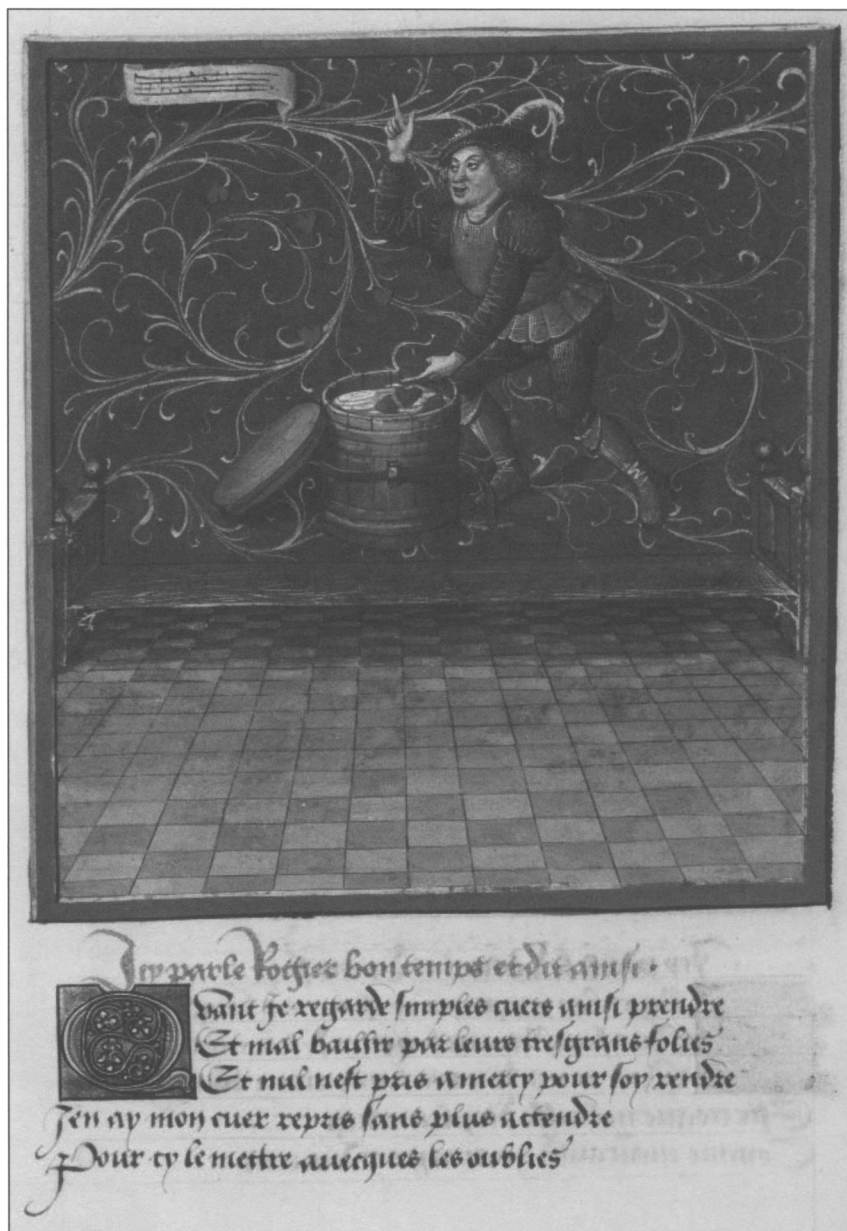 Icy parle Rogier bon temps et dit ainsi .
Quant je regarde simples cuers ainsi prendre
Et mal baillir par leurs tresgrans folies
Et nul nest pris a mercy pour soy rendre
Jen ay mon cuer repris sans plus attendre
Pour cy le mettre avecques les oublies